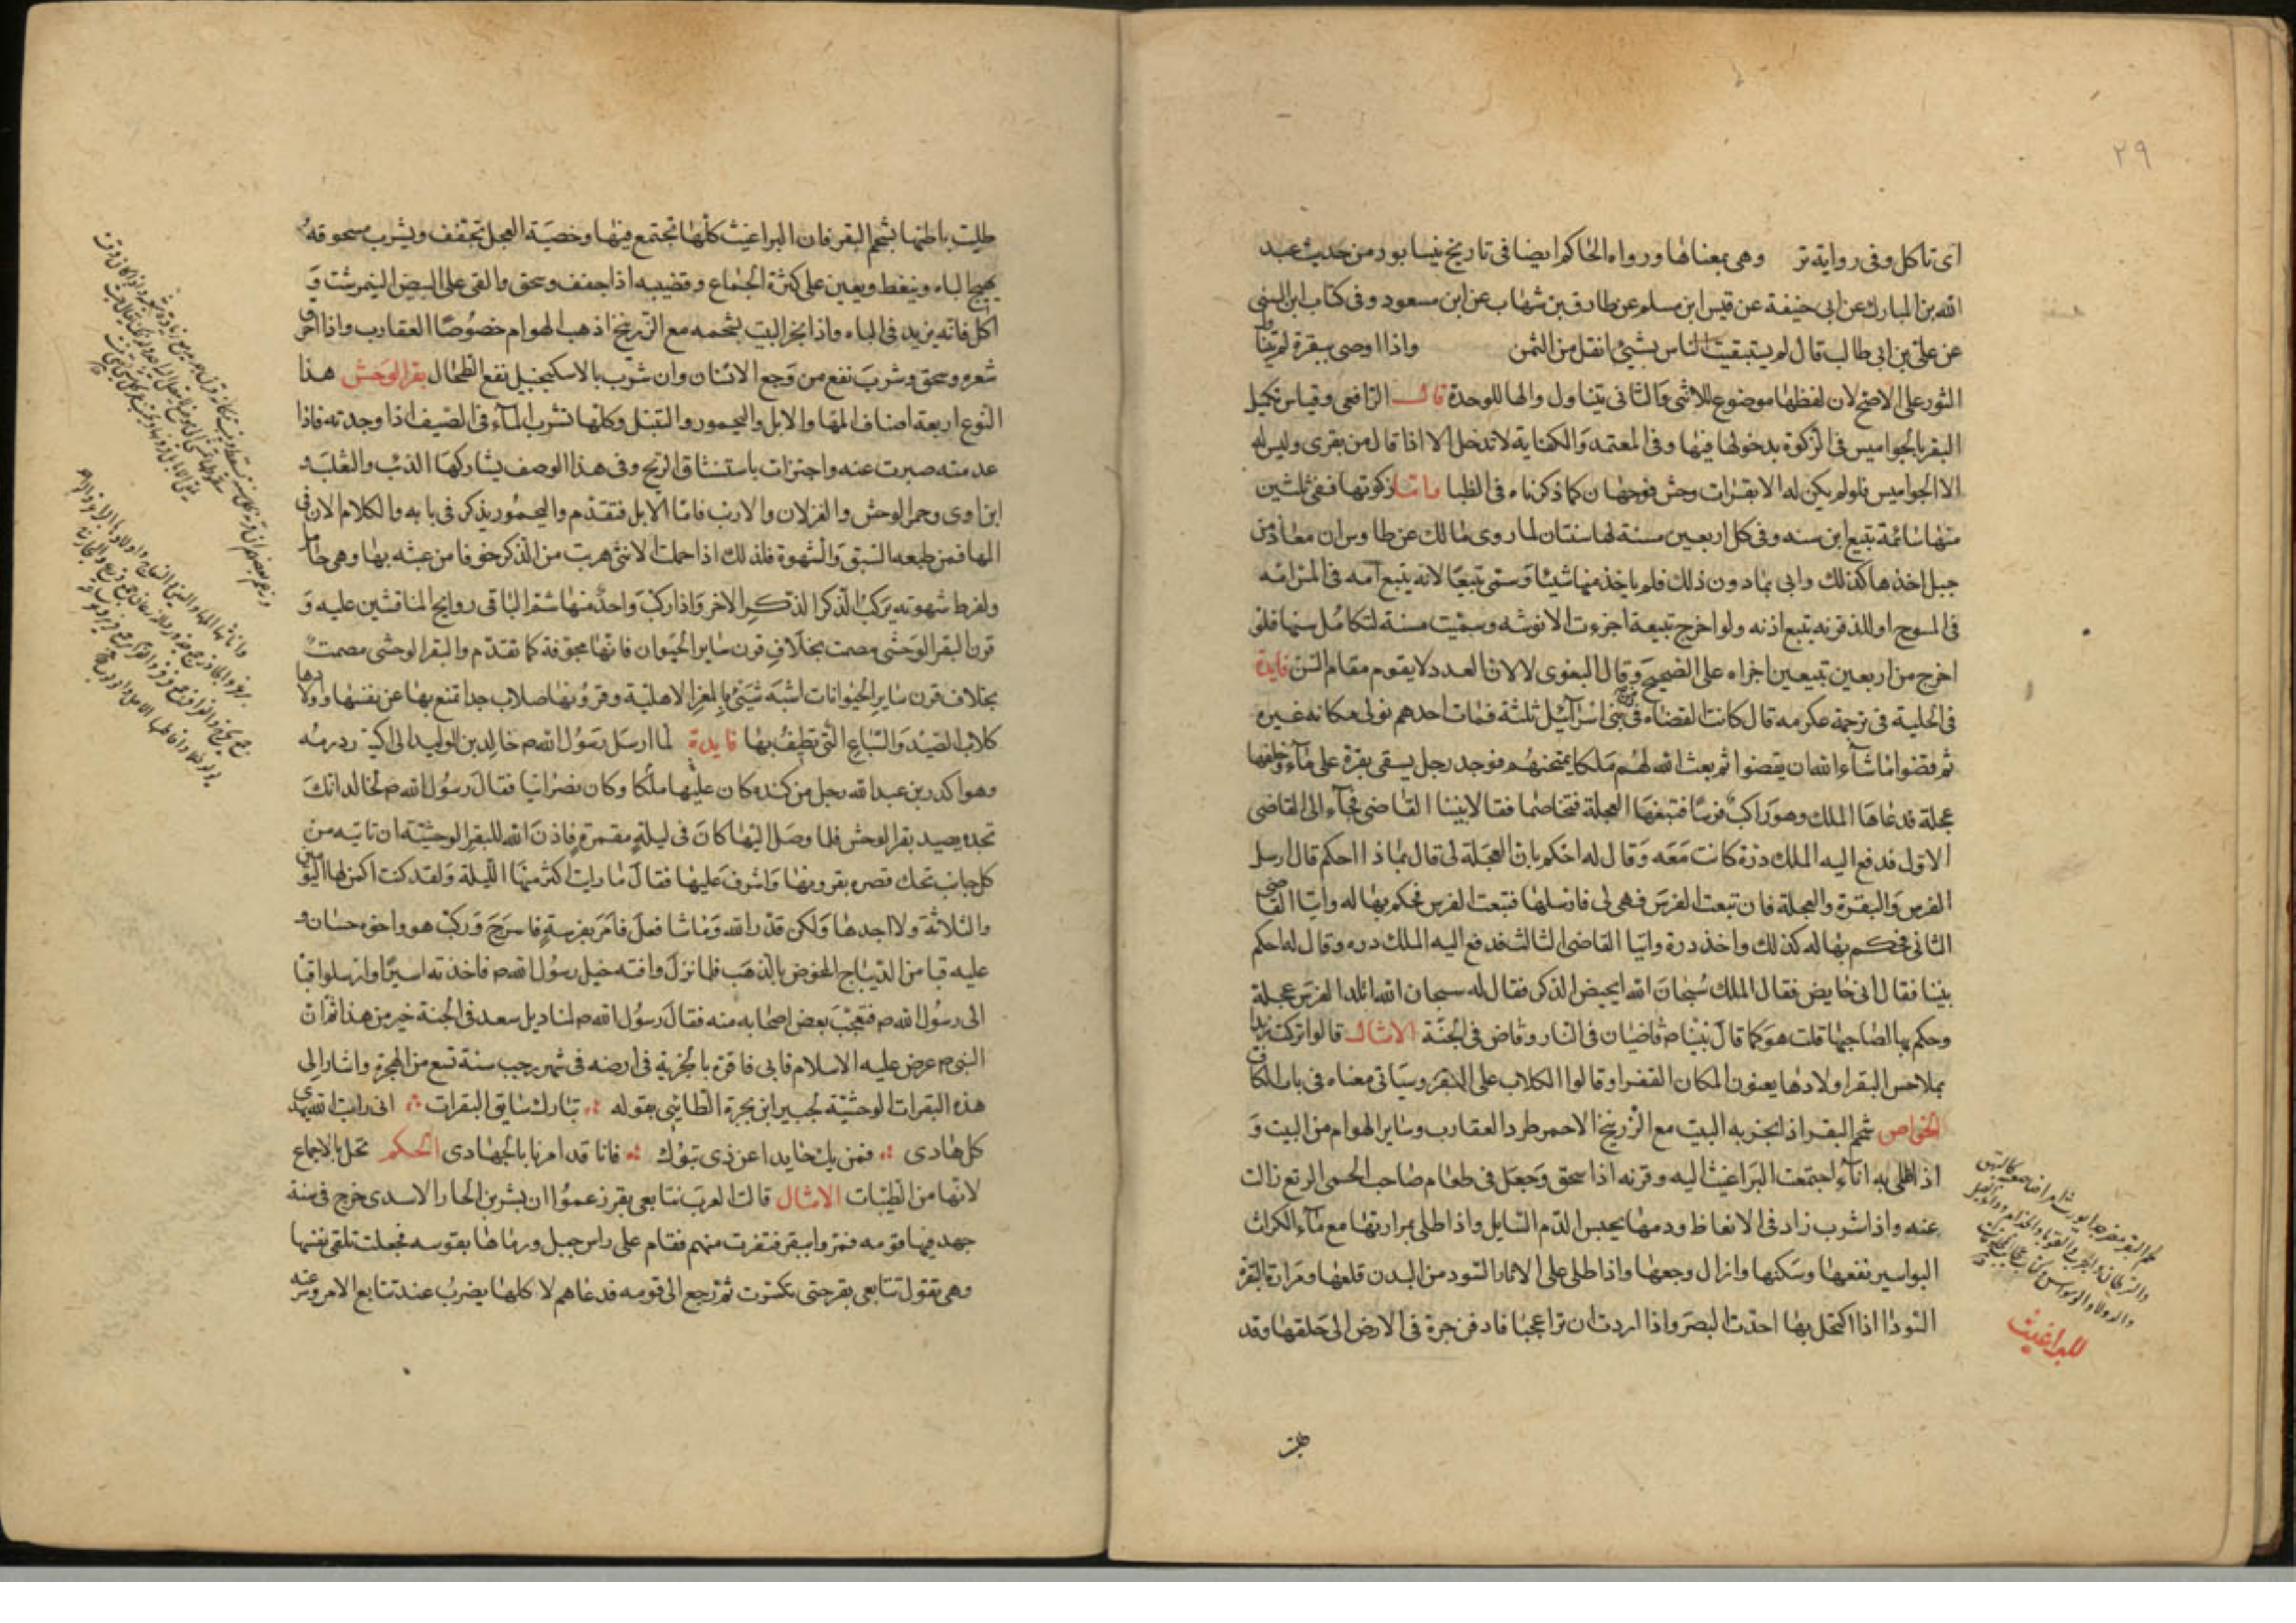 ٢٩
اى تاكل وفى رواية تر وهى بمعناها ورواه الحاكم ايضا فى تاريخ نيسابور من حديث عبد
الله بن المبارك عن ابى حنيفة عن قيس ابن مسلم عن طارق بن شهاب عن ابن مسعود وفى كتاب ابن السنى
عن على بن ابى طالب قال لم يستبقيت الناس بشيئ انقل من الثمن واذا اوصى ببقرة لم يتنا
ول
الثور على الاصح لان لفظها موضوع للانثى والثانى يتناول والها للوحدة قال الرافعى وقياس تكيل
البقر بالجواميس فى الزكوة بدخولها فيها وفى المعتمد والكفاية لا تدخل الا اذا قال من بقرى وليس له
الا الجواميس فلو لم يكن له الا بقرات وحش فوجهان كما ذكرناه فى الظبا واما زكوتها ففى ثلثين
منها سائمة تبيع ابن سنه وفى كل اربعين مسنة لها سنتان لما روى مالك عن طاوس ان معاذ بن
جبل اخذها كذلك واتى بما دون ذلك فلم ياخذ منها شيئا وسمى تبيعا لانه يتبع امه فى المسراقه
فى المسرح او للذ قرنه يتبع اذنه ولو اخرج تبيعة اجزءت الانوثه وسميت مسنة لتكامل سنها فلو
اخرج من اربعين تبيعين اجزاه على الصحيح وقال البغوى لا لان العدد لا يقوم مقام السن فايدة
فى الحلية فى ترجمة عكرمه قال كانت القضاة فى بنى اسرآئيل ثلثة فمات احدهم فولى مكانه غيره
ثم قضوا ما شآء الله ان يقضوا ثم بعث الله لهم ملكا يمتحنهم فوجد رجل يسقى بقرة على مآء وخلفها
عجلة فدعاها الملك وهو راكب فرسا فتبعها العجلة فتخاصما فقالا بيننا القاضى فجآء الى القاضى
الاول فدفع اليه الملك درة كانت معه وقال له احكم بان العجلة لى قال بماذا احكم قال ارسل
الفرس والبقرة والعجلة فان تبعت الفرس فهى لى فارسلها فتبعت الفرس فحكم بها له واتيا القا
ضى
الثانى فحكم بها له كذلك واخذ درة واتيا القاضى الثالث فدفع اليه الملك دره وقال له احكم
بيننا فقال انى حايض فقال الملك سبحان الله ايحيض الذكر فقال له سبحان الله اتلد الفرس عجلة
وحكم بها لصاحبها قلت هو كما قال نبينا ص قاضيان فى النار وقاض فى الجنة الامثال قالوا تركت زيدا
بملاحس البقر اولادها يعنون المكان القفر وقالوا الكلاب على البقر وسياتى معناه فى باب الكا
ف
الخواص شحم البقر اذا بخر به البيت مع الزرنيخ الاحمر طرد العقارب وساير الهوام من البيت و
اذا طلى به انآء اجتمعت البراغيث اليه وقرنه اذا سحق وجعل فى طعام صاحب الحمى الربع زالت
عنه واذا شرب زاد فى الانعاظ ودمها يحبس الدم السايل واذا طلى بمرارتها مع مآء الكراث
البواسير نفعها وسكنها وازال وجعها واذا طلى على الاثار السود من البدن قلعها ومرارة البقرة
السودا اذا اكتحل بها احدت البصر واذا اردت ان ترا عجبا فادفن جرة فى الارض الى حلقها وقد
للبراغيث
طليت
طليت باطنها بشحم البقر فان البراغيث كلها تجتمع فيها وخصية العجل تجفف ويشرب مسحوقه
يهيج الباه وينعظ ويعين على كثرة الجماع وقضيبه اذا جفف وسحق والقى على البيض النيمرشت و
اكل فانه يزيد فى الباه واذا بخر البيت بشحمه مع الزرنيخ اذهب الهوام خصوصا العقارب واذا احر
ق
شعره وسحق وشرب نفع من وجع الاسنان وان شرب بالاسكنجبيل نفع الطحال بقر الوحش هذا
النوع اربعة اصناف المها والابل واليحمور والتيتل وكلها تشرب المآء فى الصيف اذا وجدته فاذا
عدمته صبرت عنه واجتزات باستنشاق الريح وفى هذا الوصف يشاركها الذئب والثعلب و
ابن اوى وحمر الوحش والغزلان والارنب فاما الابل فتقدم واليحمور يذكر فى بابه والكلام الان فى
المها فمن طبعه الشبق والشهوة فلذلك اذا حملت الانثى هربت من الذكر خوفا من عبثه بها وهى حا
مل
ولفرط شهوته يركب الذكر الذكر الاخر واذا ركب واحد منها شم الباقى روايح الماء فيثبن عليه و
قرن البقر الوحشى مصمت بخلاف قرن ساير الحيوان فانها مجوفة كما تقدم والبقر الوحشى مصمت
بخلاف قرن ساير الحيوانات اشبه شيئ بالمعز الاهلية وقرونها صلاب جدا تمنع بها عن نفسها واولا
دها
كلاب الصيد والسباع التى تطيف بها فايدة لما ارسل رسول الله ص خالد بن الوليد الى اكيدر دومه
وهو اكدر بن عبد الله رجل من كنده كان عليها ملكا وكان نصرانيا فقال رسول الله ص لخالد انك
تجده يصيد بقر الوحش فلما وصل اليها كان فى ليلة مقمرة فاذن الله للبقر الوحشية ان تاتيه من
كل جانب تحك قصره بقرونها واشرف عليها فقال ما رايت اكثر منها الليلة ولقد كنت اكمن لها اليو
مين
والثلاثة ولا اجدها ولكن قدر الله وما شا فعل فامر بفرسه فاسرج وركب هو واخوه حسان و
عليه قبا من الديباج المخوض بالذهب فلما نزل وافته خيل رسول الله ص فاخذته اسيرا وارسلوا قبا
الى رسول الله ص فتعجب بعض اصحابه منه فقال رسول الله ص لمناديل سعد فى الجنة خير من هذا ثم ان
النبى ص عرض عليه الاسلام فابى فاقره بالجزية فى ارضه فى شهر رجب سنة تسع من الهجرة واشار الى
هذه البقرات الوحشية لجبير ابن بجرة الطائى بقوله تبارك سايق البقرات انى رايت الله يهدى
كل هادى فمن يك حايدا عن ذى تبوك فانا قد امرنا بالجهادى الحكم تحل بالاجماع
لانها من الطيبات الامثال قالت العرب تتابعى بقر زعموا ان بشر بن الحارا الاسدى خرج فى سنة
جهد فيها قومه فمر وا ببقر فنفرت منهم فقام على راس جبل ورماها بقوسه فجعلت تلقى نفسها
وهى تقول تتابعى بقر حتى تكسرت ثم رجع الى قومه فدعاهم لاكلها يضرب عند تتابع الامر وسرعته